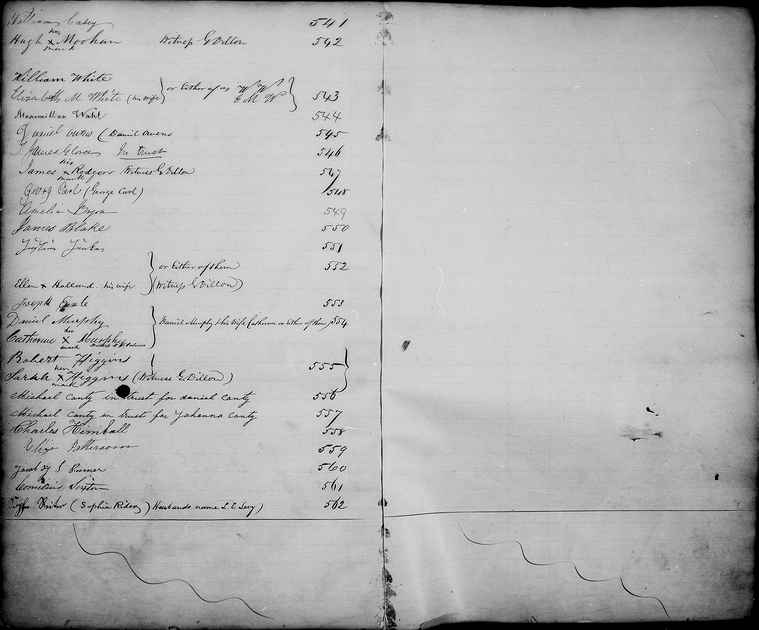 William Casey 541
Hugh his x mark Moohan Witness G Dillon 542
William White
Elizabeth M White (his wife) or Either of us W W E M W 543
Maximillan Wahl 544
Daniel (Daniel Owens 545
James Glover In trust 546
James his x mark Rodgers Witness G Dillon 547
Georg Carl (George Carl) 548
Amelia 549
James Blake 550
551
or Either of them 552
Ellen x Holland his wife (Witness G Dillon)
Joseph 553
Daniel Murphy Daniel Murphy & his Wife Catherine or Either of them 554
Catherine her x mark Murphy
Robert Higgins 555
Sarah her x mark Higgins (Witness G Dillon)
Michael Canty in trust for daniel Canty 556
Michael Canty in trust for Johanna Canty 557
Charles Kimball 558
Eliza Patterson 559
Jacob 560
Cornelius Sexton 561
(Sophia Rider) Husbands name L C Levy) 562